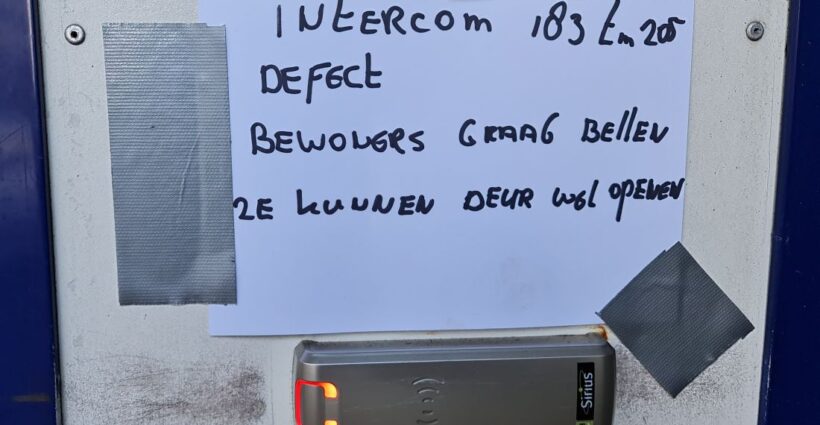 INTERCOM 183 tm 205
DEFECT
BEWONERS GRAAG BELLEN
ZE KUNNEN DEUR WEL OPENEN
Sirius